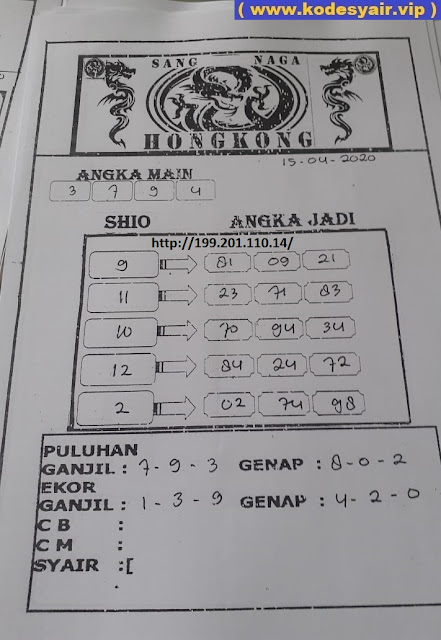 ( www.kodesyair.vip )
SANG NAGA
HONGKONG
15-04-2020
ANGKA MAIN
3 7 9 4
SHIO ANGKA JADI
http://199.201.110.14/
9 81 09 21
11 23 71 83
10 70 94 34
12 84 24 72
2 02 74 98
PULUHAN
GANJIL : 7-9-3 GENAP : 8-0-2
EKOR
GANJIL : 1-3-9 GENAP : 4-2-0
C B :
C M :
SYAIR :[